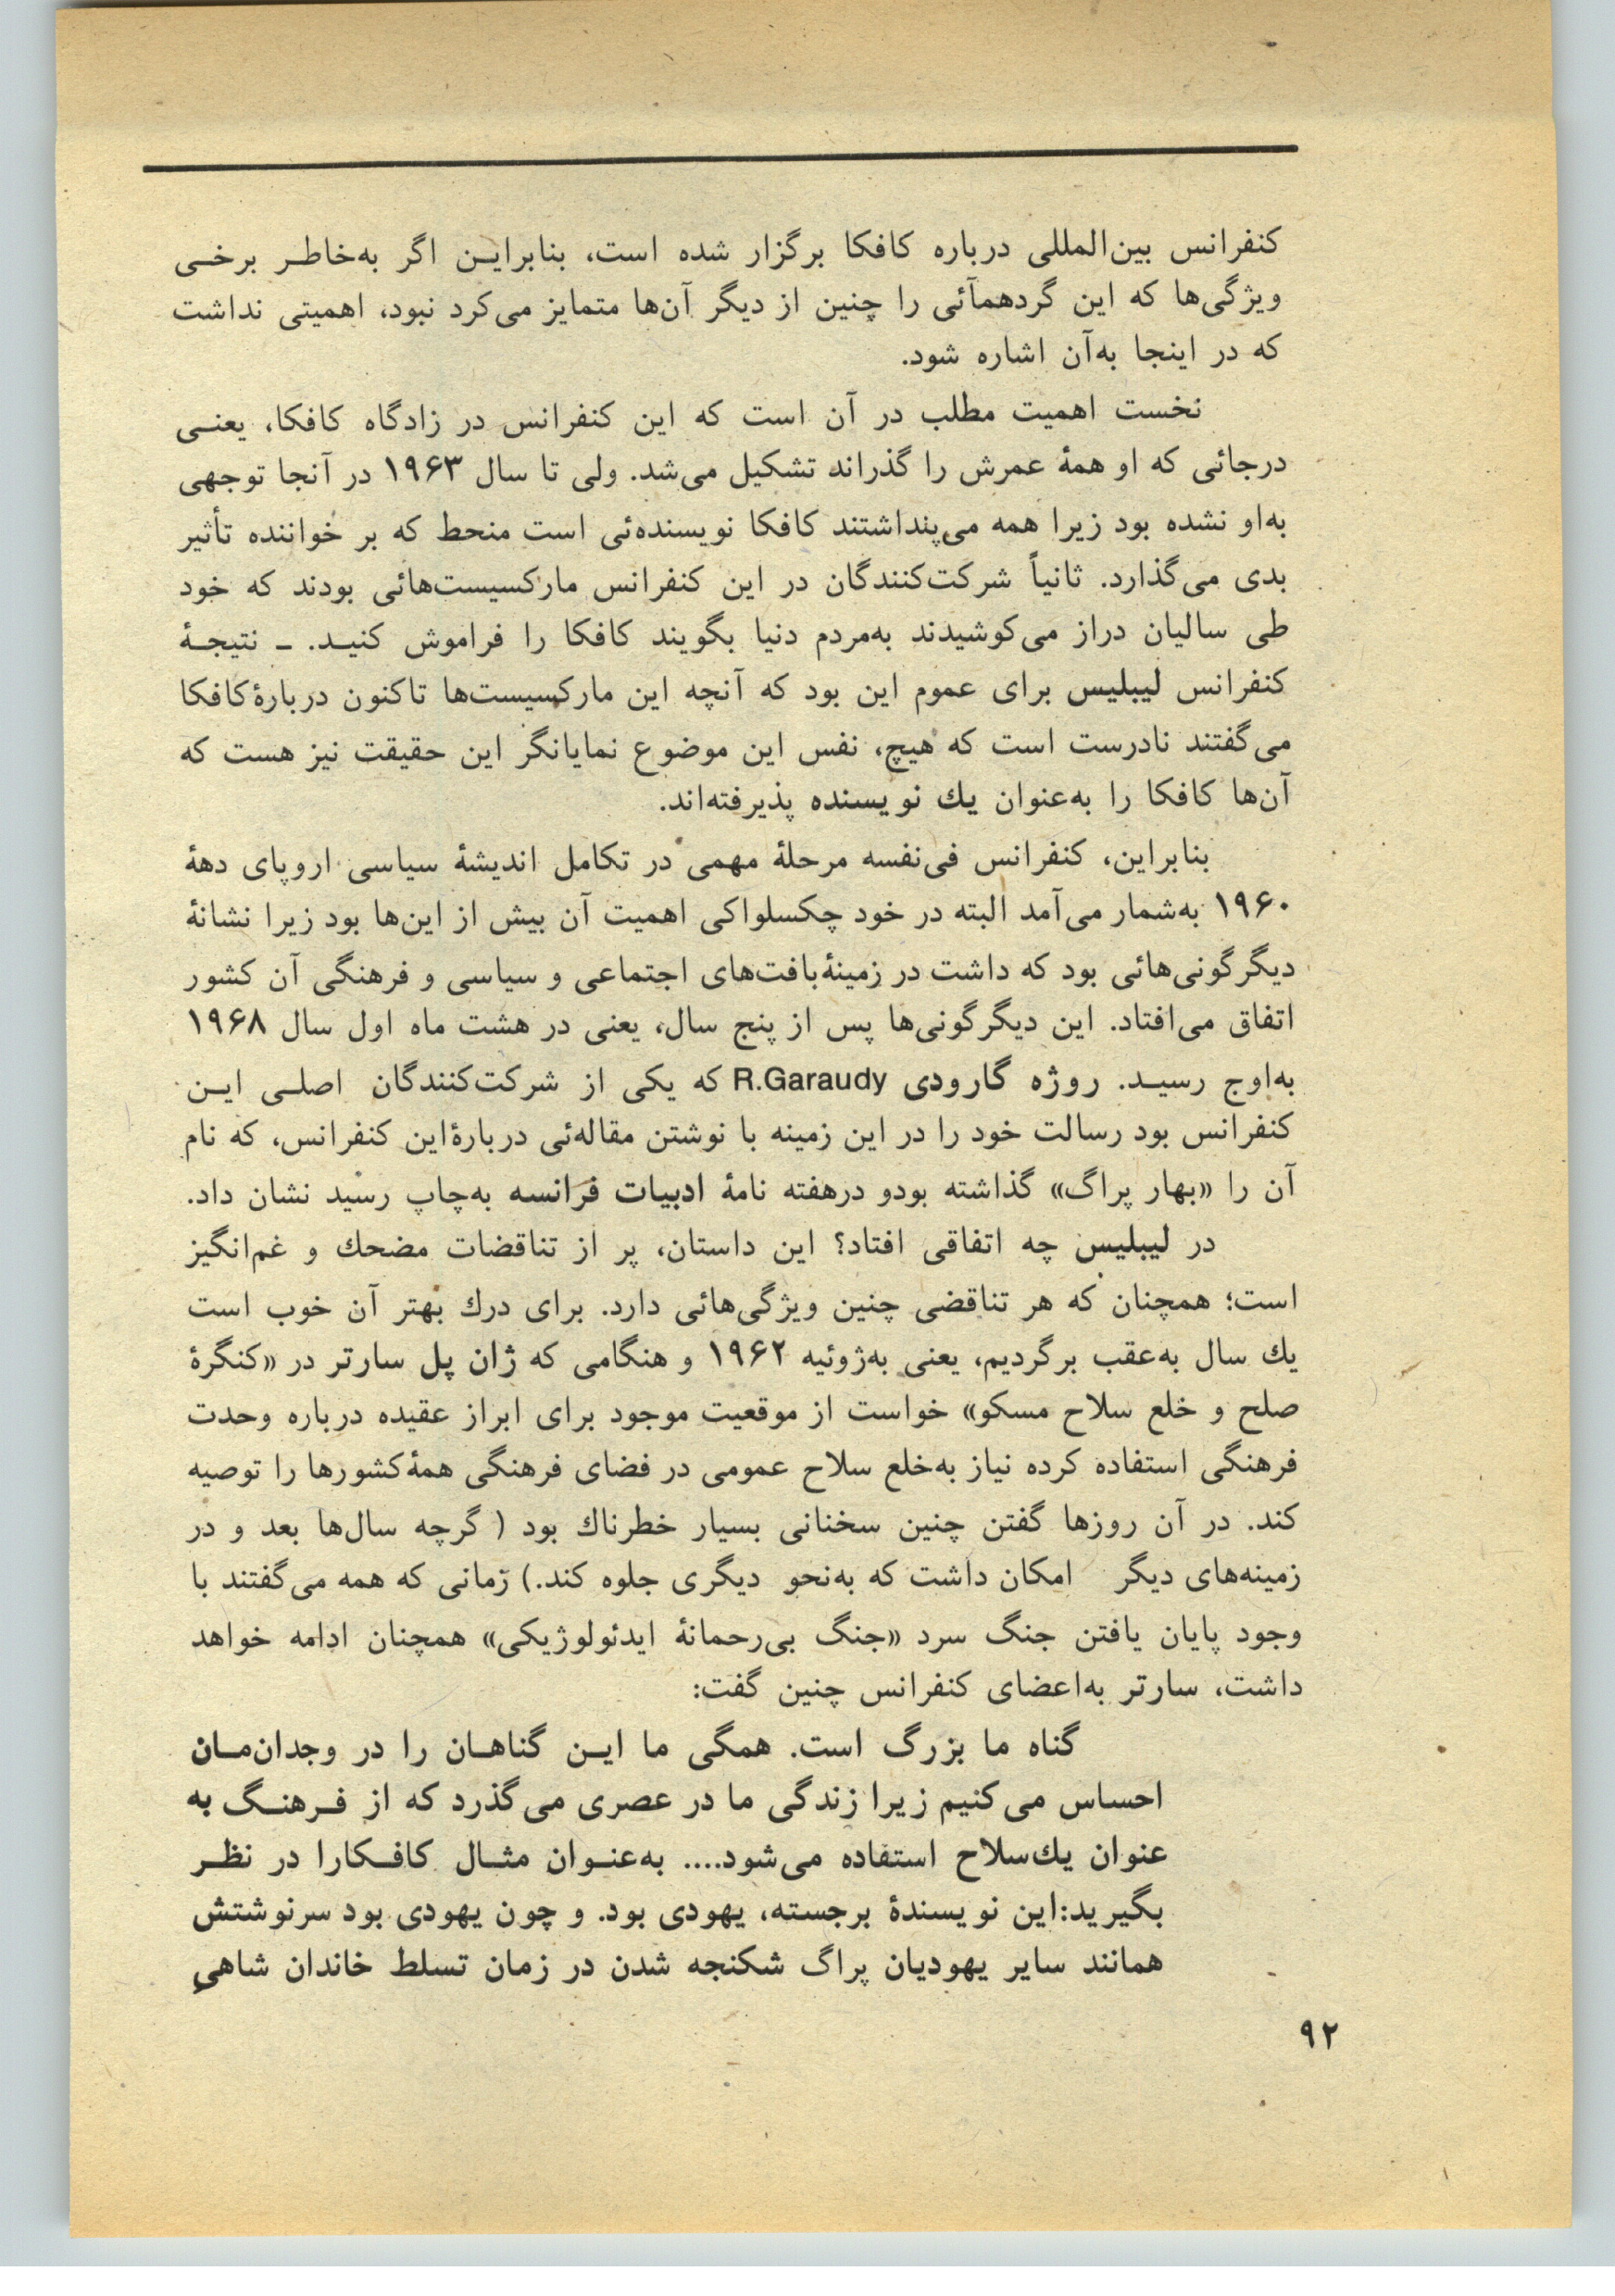 کنفرانس بین‌المللی درباره کافکا برگزار شده است، بنابراین اگر به‌خاطر برخی
ویژگی‌ها که این گردهمآئی را چنین از دیگر آن‌ها متمایز می‌کرد نبود، اهمیتی نداشت
که در اینجا به‌آن اشاره شود.
نخست اهمیت مطلب در آن است که این کنفرانس در زادگاه کافکا، یعنی
درجائی که او همهٔ عمرش را گذرانده تشکیل می‌شد. ولی تا سال ۱۹۶۳ در آنجا توجهی
به‌او نشده بود زیرا همه می‌پنداشتند کافکا نویسنده‌ئی است منحط که بر خواننده تأثیر
بدی می‌گذارد. ثانیاً شرکت‌کنندگان در این کنفرانس مارکسیست‌هائی بودند که خود
طی سالیان دراز می‌کوشیدند به‌مردم دنیا بگویند کافکا را فراموش کنید. ـ نتیجهٔ
کنفرانس لیبلیس برای عموم این بود که آنچه این مارکسیست‌ها تاکنون دربارهٔ‌کافکا
می‌گفتند نادرست است که هیچ، نفس این موضوع نمایانگر این حقیقت نیز هست که
آن‌ها کافکا را به‌عنوان یك نویسنده پذیرفته‌اند.
بنابراین، کنفرانس فی‌نفسه مرحلهٔ مهمی در تکامل اندیشهٔ سیاسی اروپای دههٔ
۱۹۶۰ به‌شمار می‌آمد البته در خود چکسلواکی اهمیت آن بیش از این‌ها بود زیرا نشانهٔ
دیگرگونی‌هائی بود که داشت در زمینهٔ‌بافت‌های اجتماعی و سیاسی و فرهنگی آن کشور
اتفاق می‌افتاد. این دیگرگونی‌ها پس از پنج سال، یعنی در هشت ماه اول سال ۱۹۶۸
به‌اوج رسید. روژه گارودی R.Garaudy که یکی از شرکت‌کنندگان اصلی این
کنفرانس بود رسالت خود را در این زمینه با نوشتن مقاله‌ئی دربارهٔ‌این کنفرانس، که نام
آن را «بهار پراگ» گذاشته بودو درهفته نامهٔ ادبیات فرانسه به‌چاپ رسید نشان داد.
در لیبلیس چه اتفاقی افتاد؟ این داستان، پر از تناقضات مضحك و غم‌انگیز
است؛ همچنان که هر تناقضی چنین ویژگی‌هائی دارد. برای درك بهتر آن خوب است
یك سال به‌عقب برگردیم، یعنی به‌ژوئیه ۱۹۶۲ و هنگامی که ژان پل سارتر در «کنگرهٔ
صلح و خلع سلاح مسکو» خواست از موقعیت موجود برای ابراز عقیده درباره وحدت
فرهنگی استفاده کرده نیاز به‌خلع سلاح عمومی در فضای فرهنگی همهٔ‌کشورها را توصیه
کند. در آن روزها گفتن چنین سخنانی بسیار خطرناك بود ( گرچه سال‌ها بعد و در
زمینه‌های دیگر امکان داشت که به‌نحو دیگری جلوه کند.) زمانی که همه می‌گفتند با
وجود پایان یافتن جنگ سرد «جنگ بی‌رحمانهٔ ایدئولوژیکی» همچنان ادامه خواهد
داشت، سارتر به‌اعضای کنفرانس چنین گفت:
گناه ما بزرگ است. همگی ما این گناهان را در وجدان‌مان
احساس می‌کنیم زیرا زندگی ما در عصری می‌گذرد که از فرهنگ به
عنوان یك‌سلاح استفاده می‌شود.... به‌عنوان مثال کافکارا در نظر
بگیرید:این نویسندهٔ برجسته، یهودی بود. و چون یهودی بود سرنوشتش
همانند سایر یهودیان پراگ شکنجه شدن در زمان تسلط خاندان شاهی
۹۲